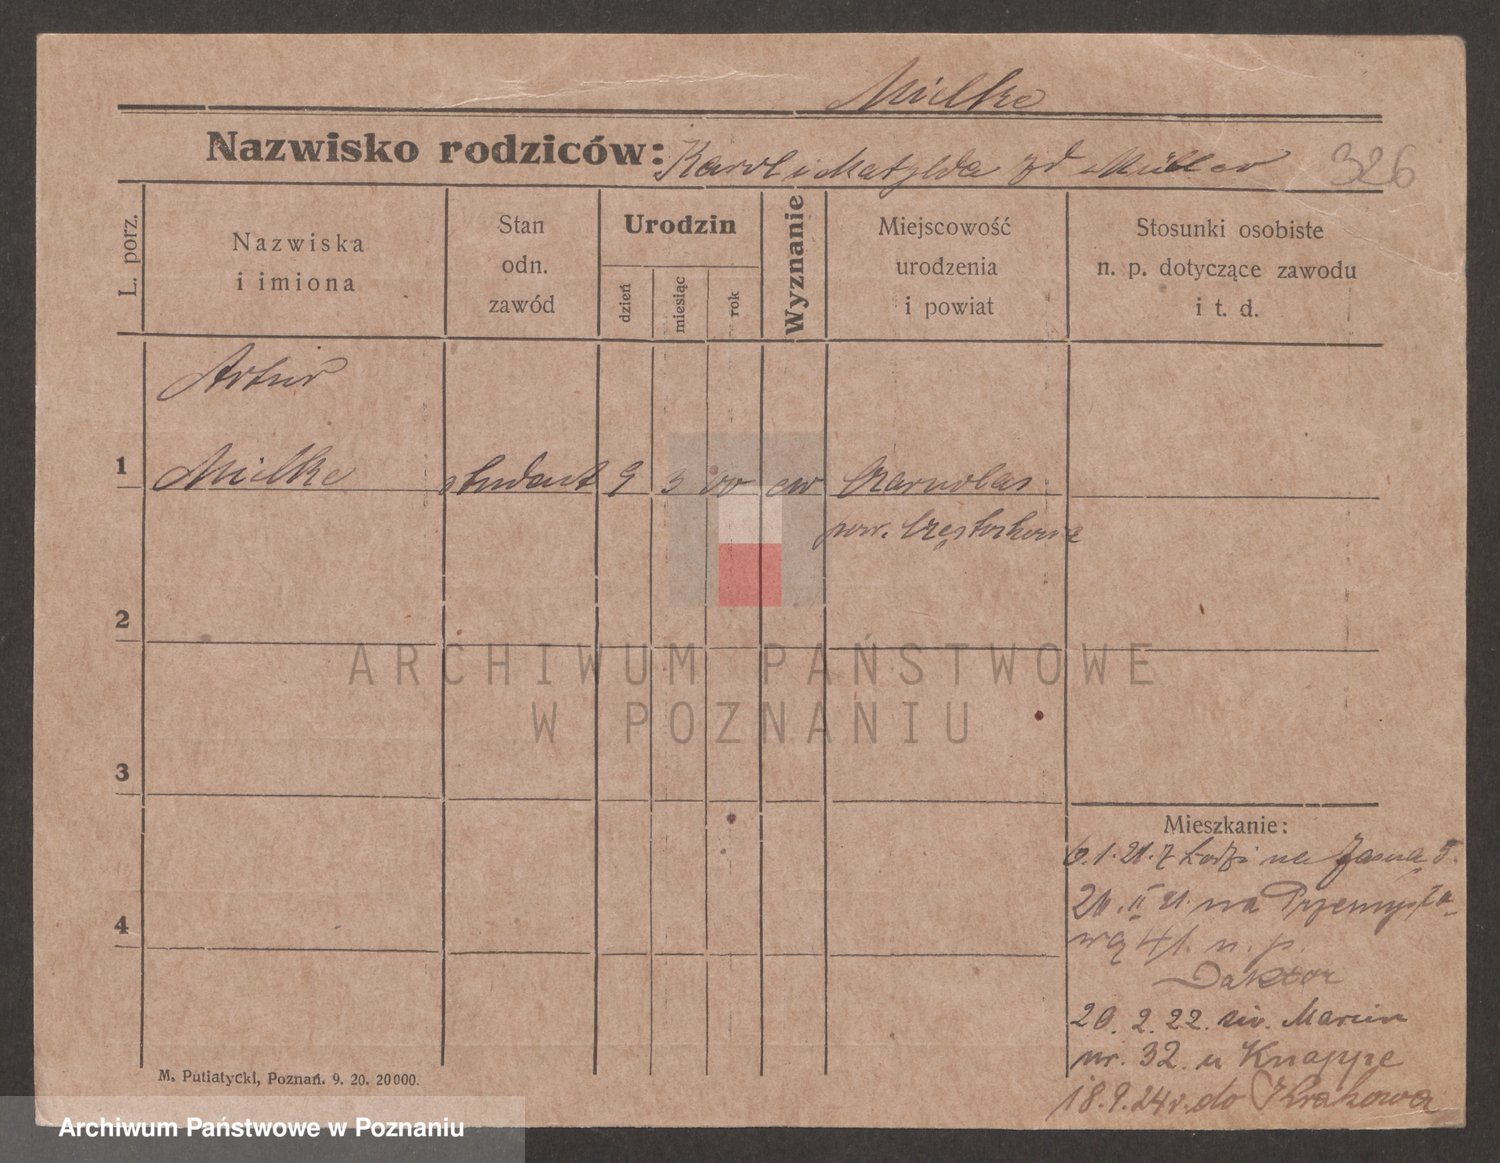 Mielke
Nazwisko rodziców: Karol i Matylda zd Müller 326
L. porz.
Nazwiska
i imiona
Stan
odn.
zawód
Urodzin
dzień
miesiąc
rok
Wyznanie
Miejscowość
urodzenia
i powiat
Stosunki osobiste
n. p. dotyczące zawodu
i t. d.
Artur
1 Mielke student 9 3 00 ew Czarnolas
pow. Częstochowa
2
3
4
Mieszkanie:
6.1.21. z Łodzi na Jasna 5.
26.II 21. na Przemysło-
wą 41. u. p.
20. 2. 22. św. Marcin
nr. 32. u Knappe
18.9.24 r. do Krakowa
M. Putiatycki, Poznań. 9. 20. 20000.
ARCHIWUM PAŃSTWOWE
W POZNANIU
Archiwum Państwowe w Poznaniu